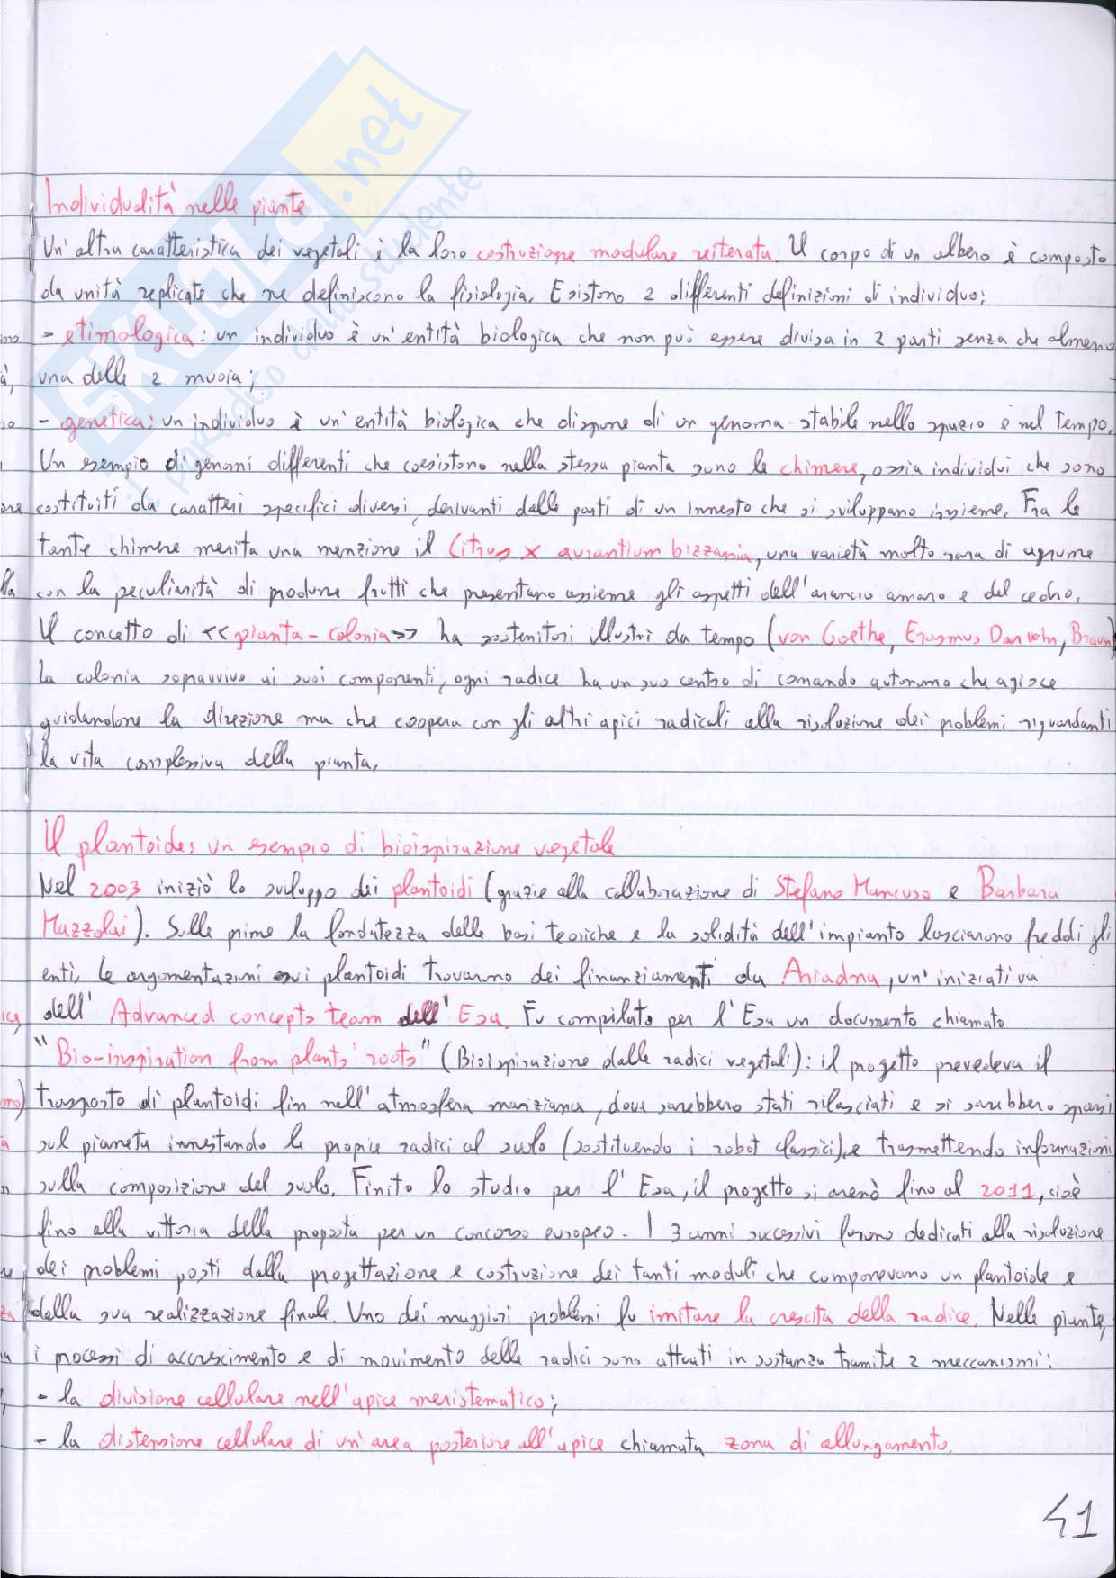 Individualità nelle piante
Un'altra caratteristica dei vegetali è la loro costruzione modulare reiterata. Il corpo di un albero è composto
da unità replicate che ne definiscono la fisiologia. Esistono 2 differenti definizioni di individuo:
- etimologica: un individuo è un'entità biologica che non può essere divisa in 2 parti senza che almeno
una delle 2 muoia;
- genetica: un individuo è un'entità biologica che dispone di un genoma stabile nello spazio e nel tempo.
Un esempio di genomi differenti che coesistono nella stessa pianta sono le chimere, ossia individui che sono
costituiti da caratteri specifici diversi, derivanti dalle parti di un innesto che si sviluppano insieme. Fra le
tante chimere merita una menzione il Citrus x aurantium bizzaria, una varietà molto rara di agrume
con la peculiarità di produrre frutti che presentano assieme gli aspetti dell'arancio amaro e del cedro.
Il concetto di <<pianta-colonia>> ha sostenitori illustri da tempo (von Goethe, Erasmus Darwin, Braun)
la colonia sopravvive ai suoi componenti, ogni radice ha un suo centro di comando autonomo che agisce
guidandone la direzione ma che coopera con gli altri apici radicali alla risoluzione dei problemi riguardanti
la vita complessiva della pianta.
Il plantoide: un esempio di bioispirazione vegetale
Nel 2003 iniziò lo sviluppo dei plantoidi (grazie alla collaborazione di Stefano Mancuso e Barbara
Mazzolai). Sulle prime la fondatezza delle basi teoriche e la solidità dell'impianto lasciarono freddi gli
enti, le argomentazioni sui plantoidi trovarono dei finanziamenti da Ariadna, un'iniziativa
dell'Advanced concepts team dell'Esa. Fu compilato per l'Esa un documento chiamato
"Bio-inspiration from plants' roots" (Bioispirazione dalle radici vegetali): il progetto prevedeva il
trasporto di plantoidi fin nell'atmosfera marziana, dove sarebbero stati rilasciati e si sarebbero sparsi
sul pianeta innestando le proprie radici al suolo (sostituendo i robot classici), e trasmettendo informazioni
sulla composizione del suolo. Finito lo studio per l'Esa, il progetto si arenò fino al 2011, cioè
fino alla vittoria della proposta per un concorso europeo. I 3 anni successivi furono dedicati alla risoluzione
dei problemi posti dalla progettazione e costruzione dei tanti moduli che componevano un plantoide e
della sua realizzazione finale. Uno dei maggiori problemi fu imitare la crescita della radice. Nelle piante,
i processi di accrescimento e di movimento delle radici sono attuati in sostanza tramite 2 meccanismi:
- la divisione cellulare nell'apice meristematico;
- la distensione cellulare di un'area posteriore all'apice chiamata zona di allungamento.
41
SKUOLA.net